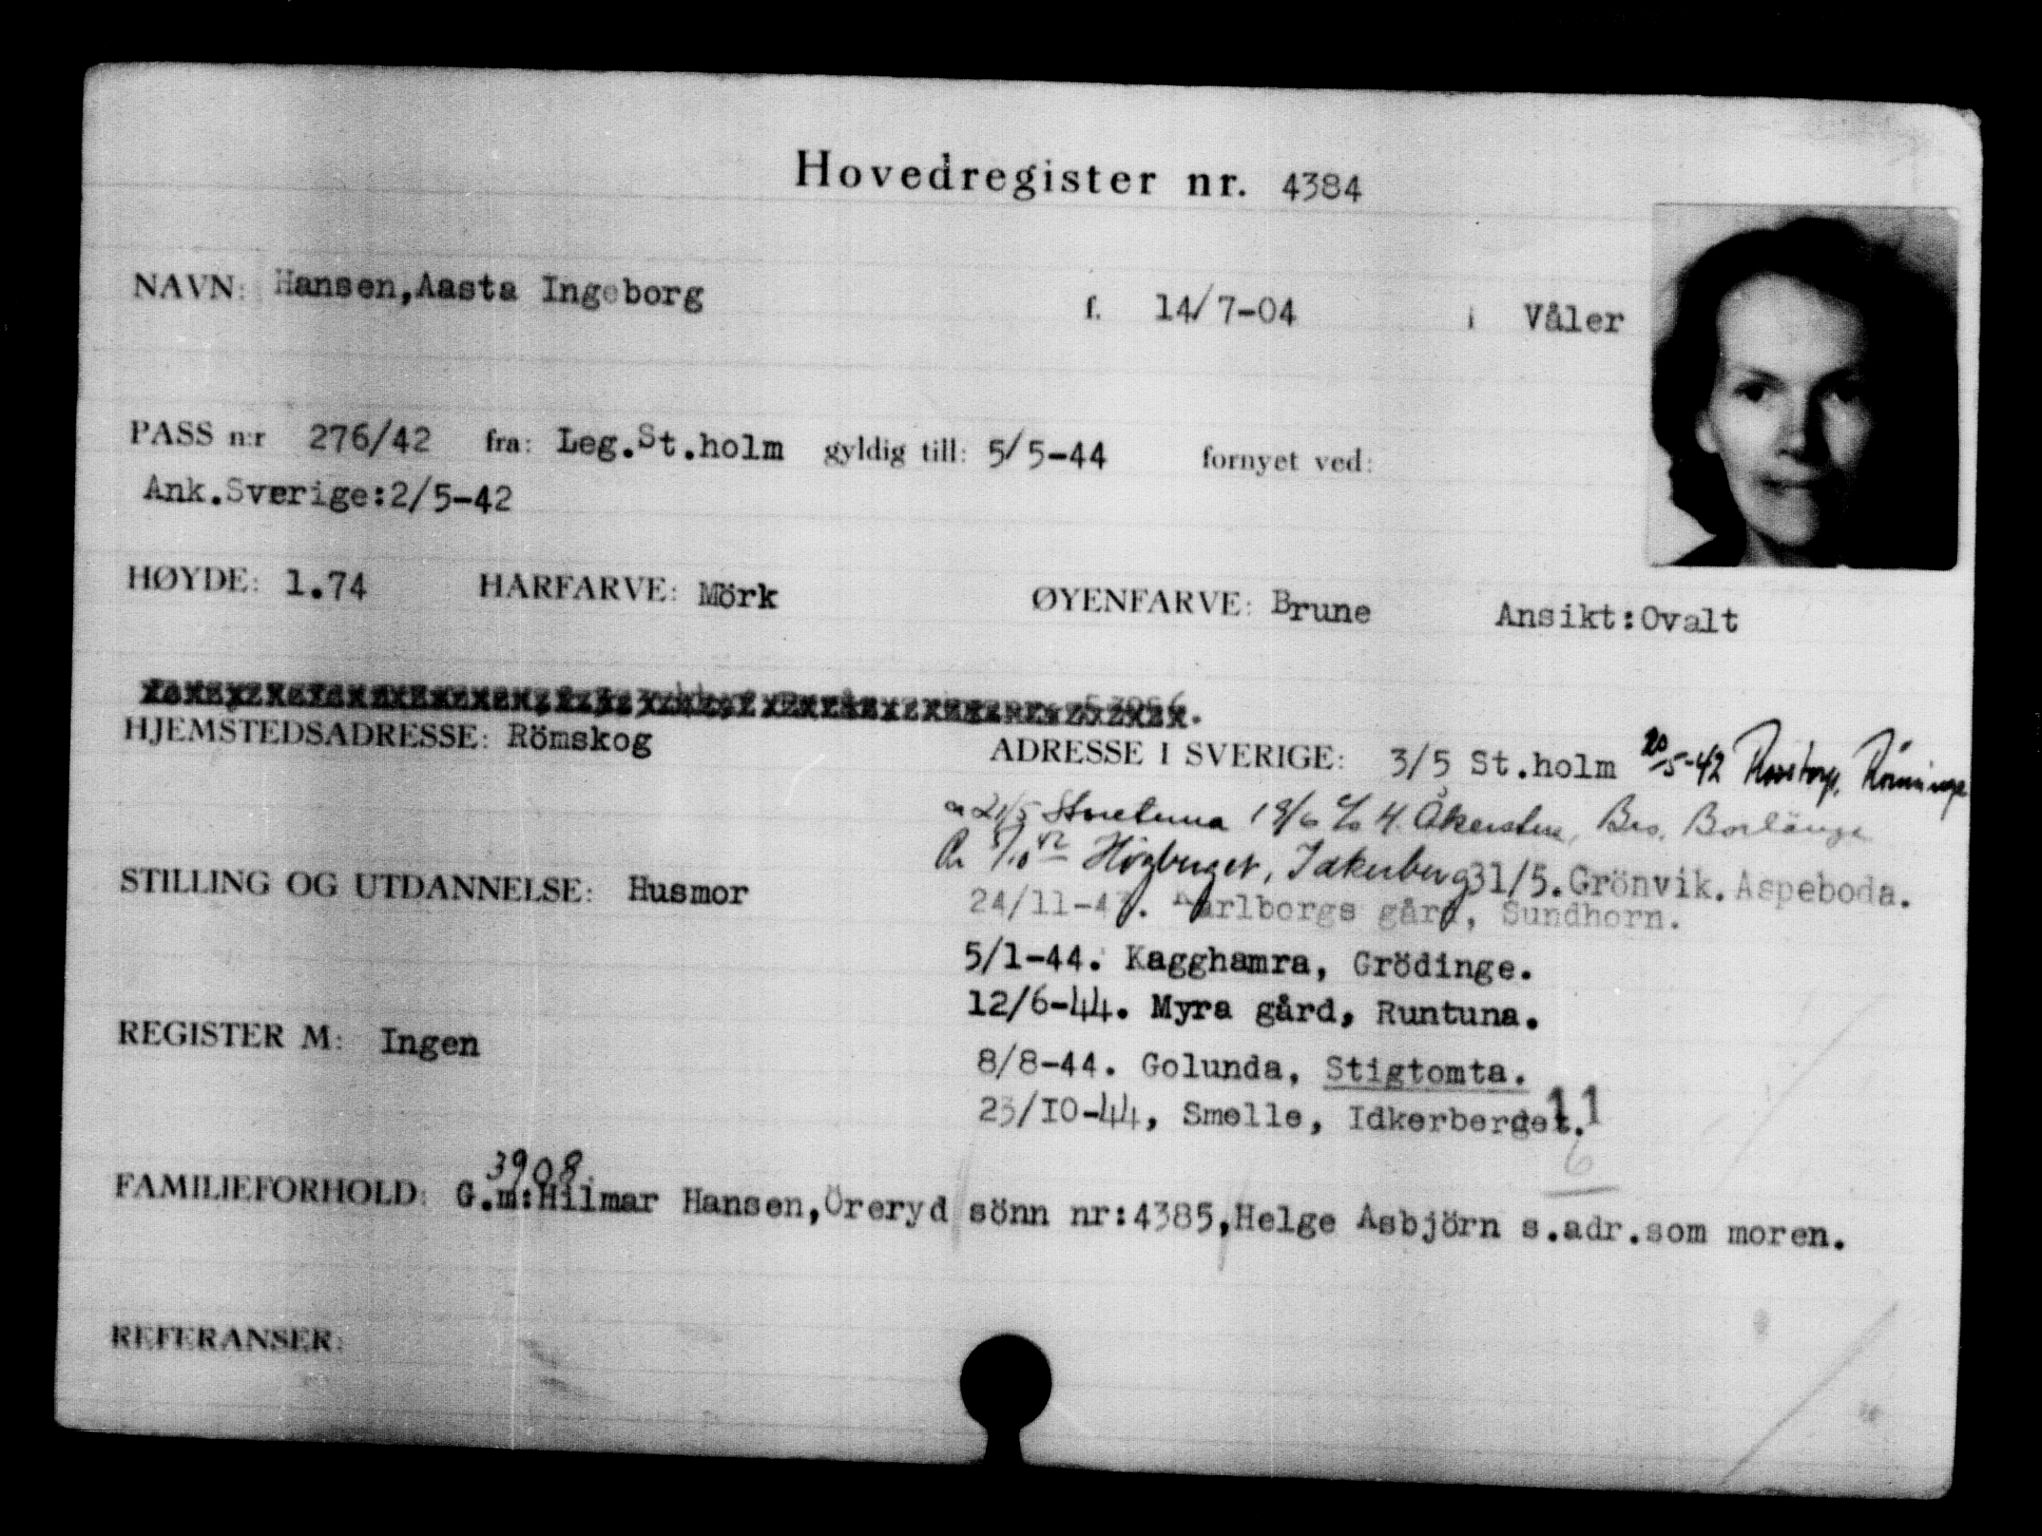 Hovedregister nr. 4384
NAVN: Hansen,Aasta Ingeborg f. 14/7-04 i Våler
PASS n:r 276/42 fra: Leg.St.holm gyldig till: 5/5-44 fornyet ved:
Ank.Sverige:2/5-42
HØYDE: 1.74 HÅRFARVE: Mörk ØYENFARVE: Brune Ansikt:Ovalt
HJEMSTEDSADRESSE: Römskog ADRESSE I SVERIGE: 3/5 St.holm 20/5-42 Rönninge
21/5 18/6 c/o H. Åkersten, Bro, Borlänge
5/10 42 Högberget, Idkerberg 31/5.Grönvik.Aspeboda.
STILLING OG UTDANNELSE: Husmor
24/11-43. Karlborgs gård, Sundhorn.
5/1-44. Kagghamra, Grödinge.
12/6-44. Myra gård, Runtuna.
REGISTER M: Ingen
8/8-44. Golunda, Stigtomta.
23/10-44, Smelle, Idkerberget. 11
6
3908
FAMILIEFORHOLD: G.m:Hilmar Hansen,Öreryd sönn nr:4385,Helge Asbjörn s.adr.som moren.
REFERANSER: